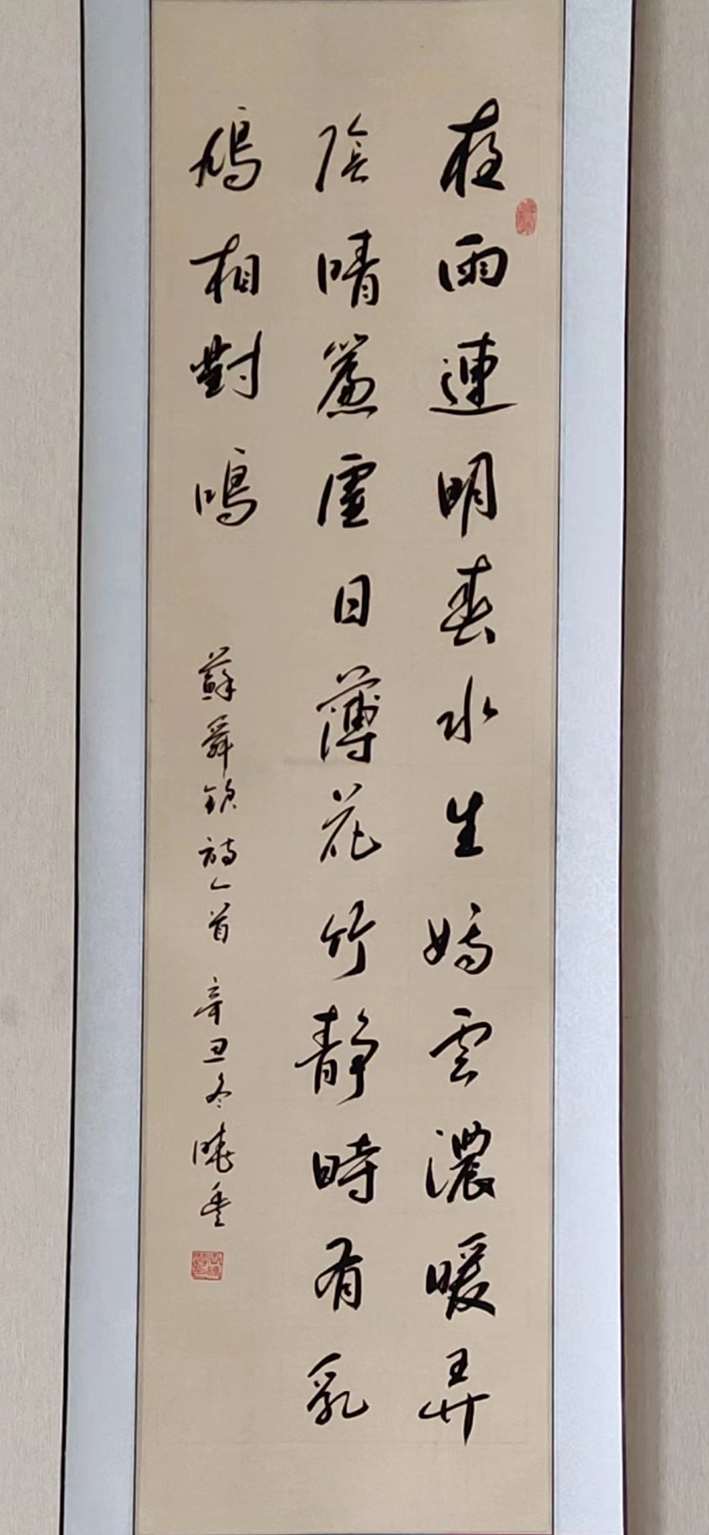 夜雨連明春水生嬌雲濃暖弄
陰晴簾虛日薄花竹靜時有乳
鳩相對鳴
蘇舜欽詩一首 辛丑冬曉